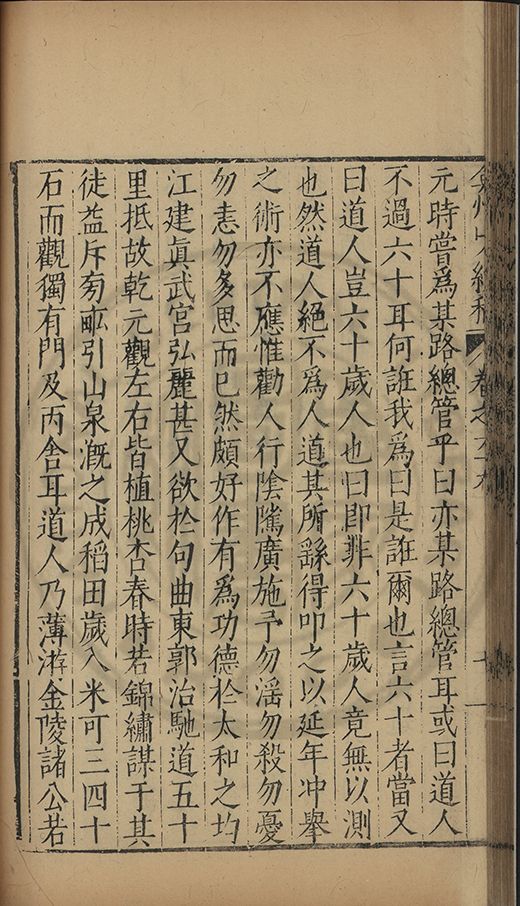 卷之六十九
元時嘗爲某路總管乎曰亦某路總管耳或曰道人
不過六十耳何誑我爲曰是誑爾也言六十者當又
曰道人豈六十歲人也曰即非六十歲人竟無以測
也然道人絕不爲人道其所繇得叩之以延年冲舉
之術亦不應惟勸人行陰隲廣施予勿淫勿殺勿憂
勿恚勿多思而已然頗好作有爲功德扵太和之均
江建眞武宮弘麗甚又欲扵句曲東郭治馳道五十
里抵故乾元觀左右皆植桃杏春時若錦繡謀于其
徒益斥旁畝引山泉漑之成稻田歲入米可三四十
石而觀獨有門及丙舍耳道人乃薄游金陵諸公若